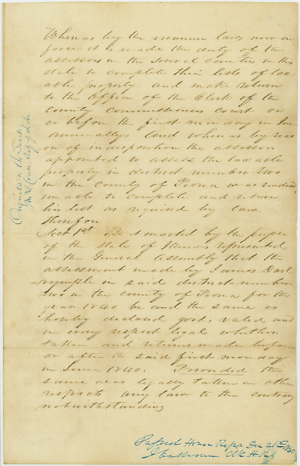 Whereas by the revenue laws now in
force it is made the duty of the
assessors in the several counties in this
state to complete their lists of tax
able property and make return
to the Office of the Clerk of the
County Commissioners Court on
or before the first monday in
annually And whereas by reas
on of indisposition the assessor
appointed to assess the taxable
property in district number two
in the county of was
unable to complete and return
his list as required by law
Therefore
Sec 1st Be it enacted by the people
of the State of Illinois represented
in the General Assembly that the
assessment made by James
in said district number
two in the county of for the
year 1840 be and the same is
hereby declared good, valid and
in every respect legal whether
taken and returned made before
or after the said first monday
in June 1840. Provided the
same was legally taken in other
respects any law to the contrary
notwithstanding
Passed House Reps Jan
J Calhoun Clk H. R.